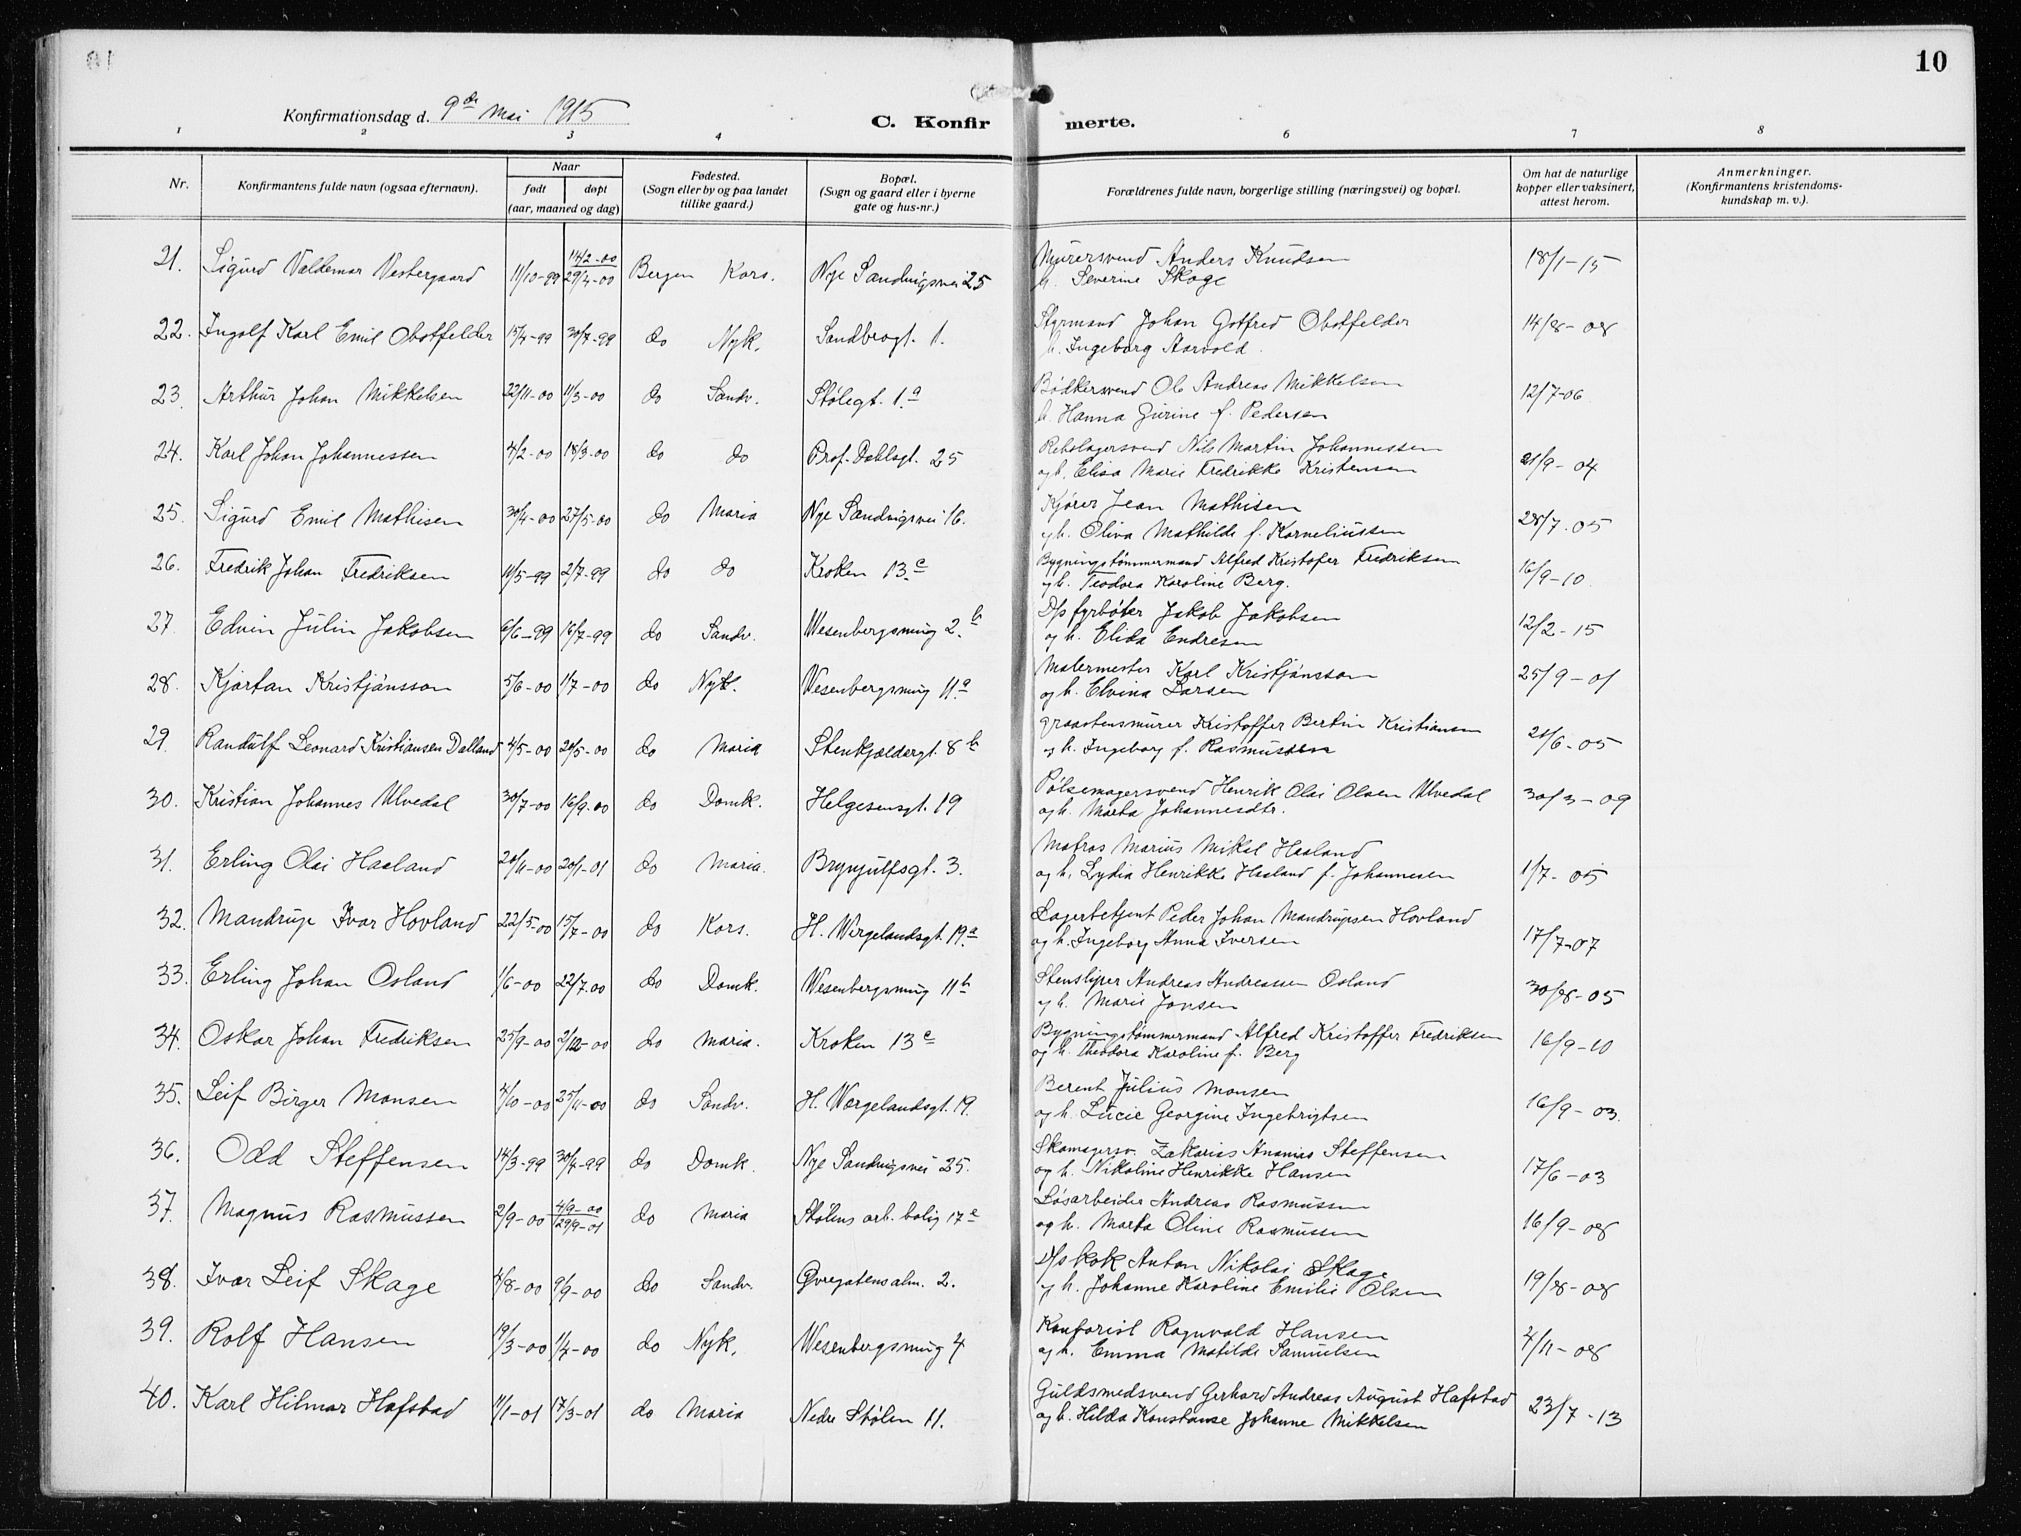 10
Konfirmationsdag d. 9de Mai 1915
C. Konfirmerte.
1 2 3 4 5 6 7 8
Nr. Konfirmantens fulde navn (ogsaa efternavn). Naar født døpt (aar, maaned og dag) Fødested. (Sogn eller by og paa landet tillike gaard.) Bopæl. (Sogn og gaard eller i byerne gate og hus-nr.) Forældrenes fulde navn, borgerlige stilling (næringsvei) og bopæl. Om hat de naturlige kopper eller vaksinert, attest herom. Anmerkninger. (Konfirmantens kristendoms-kundskap m. v.).
21. Sigurd Valdemar Vestergaard 11/10-99 14/2-00 29/4-00 Bergen Kors. Nye Sandvigsvei 25 Murersvend Anders Knudsen 18/1-15
h. Severine Skage
22. Ingolf Karl Emil Obstfelder 15/4-99 30/7-99 do Nyk. Sandbrogt. 1. Styrmand Johan Gotfred Obstfelder 14/8-08
h. Ingeborg Aarvold.
23. Arthur Johan Mikkelsen 22/11-00 11/3-00 do Sandv. Stølegt. 1.a Bødkersvend Ole Andreas Mikkelsen 12/7-06
h. Hanna Gurine f. Pedersen
24. Karl Johan Johannessen 4/2-00 18/3-00 do do Prof. Dahlsgt. 25 Rebslagersvend Nils Martin Johannessen 21/9-04
og h. Elisa Marie Fredrikke Kristensen
25. Sigurd Emil Mathisen 30/4-00 27/5-00 do Maria Nye Sandvigsvei 16. Kjører Jean Mathisen 28/7-05
og h. Oliva Mathilde f. Korneliussen
26. Fredrik Johan Fredriksen 11/5-99 2/7-99 do do Kroken 13.c Bygningstømmermand Alfred Kristofer Fredriksen 16/9-10
og h. Teodora Karoline Berg.
27. Edvin Julin Jakobsen 6/6-99 16/7-99 do Sandv. Wesenbergsmug 2.b D/s fyrbøter Jakob Jakobsen 12/2-15
og h. Elida Endresen
28. Kjartan Kristjánsson 5/6-00 1/7-00 do Nyk. Wesenbergsmug 11.a Malermester Karl Kristjánsson 25/9-01
og h. Elvina Larsen
29. Randulf Leonard Kristiansen Dalland 4/5-00 20/5-00 do Maria Stenkjeldergt. 8b Graastensmurer Kristoffer Bertin Kristiansen 21/6-05
og h. Ingeborg f. Rasmussen
30. Kristian Johannes Ulvedal 30/7-00 16/9-00 do Domk. Helgesensgt. 19 Pølsemagersvend Henrik Olai Olsen Ulvedal 30/3-09
og h. Marta Johannesdtr.
31. Erling Olai Haaland 20/11-00 20/1-01 do Maria. Brynjulfsgt. 3. Matros Marius Mikal Haaland 1/7-05
og h. Lydia Henrikke Haaland f. Johannesen
32. Mandrup Ivar Hovland 22/5-00 15/7-00 do Kors. H. Wergelandsgt. 19.a Lagerbetjent Peder Johan Mandrupsen Hovland 17/7-07
og h. Ingeborg Anna Iversen
33. Erling Johan Osland 1/6-00 22/7-00 do Domk. Wesenbergsmug 11b Stensliper Andreas Andreassen Osland 30/8-05
og h. Marie Jonsen
34. Oskar Johan Fredriksen 25/9-00 2/12-00 do Maria. Kroken 13c Bygningstømmermand Alfred Kristoffer Fredriksen 16/9-10
og h. Theodora Karoline f. Berg
35. Leif Birger Monsen 4/10-00 25/11-00 do Sandv. H. Wergelandsgt. 19. Berent Julius Monsen 16/9-03.
og h. Lucie Georgine Ingebrigtsen
36. Odd Steffensen 14/3-99 30/4-99 do Domk. Nye Sandvigsvei 25. Skomagersv. Zakarias Ananias Steffensen 17/6-03
og h. Nikoline Henrikke Hansen
37. Magnus Rasmussen 2/9-00 4/9-00 29/9-01 do Maria Stølens arb. bolig 17e Løsarbeider Andreas Rasmussen 16/9-08
og h. Marta Oline Rasmussen
38. Ivar Leif Skage 4/8-00 9/9-00 do Sandv. Øvregatens alm. 2. D/s kok Anton Nikolai Skage 19/8-08
og h. Johanne Karoline Emilie Olsen
39. Rolf Hansen 19/3-00 1/4-00 do Nyk. Wesenbergsmug 4 Kontorist Ragnvald Hansen 4/11-08
og h. Emma Matilde Samuelsen
40. Karl Hilmar Hafstad 11/1-01 17/3-01 do Maria Nedre Stølen 11. Guldsmedsvend Gerhard Andreas August Hafstad 23/7-13
og h. Hilda Konstanse Johanne Mikkelsen